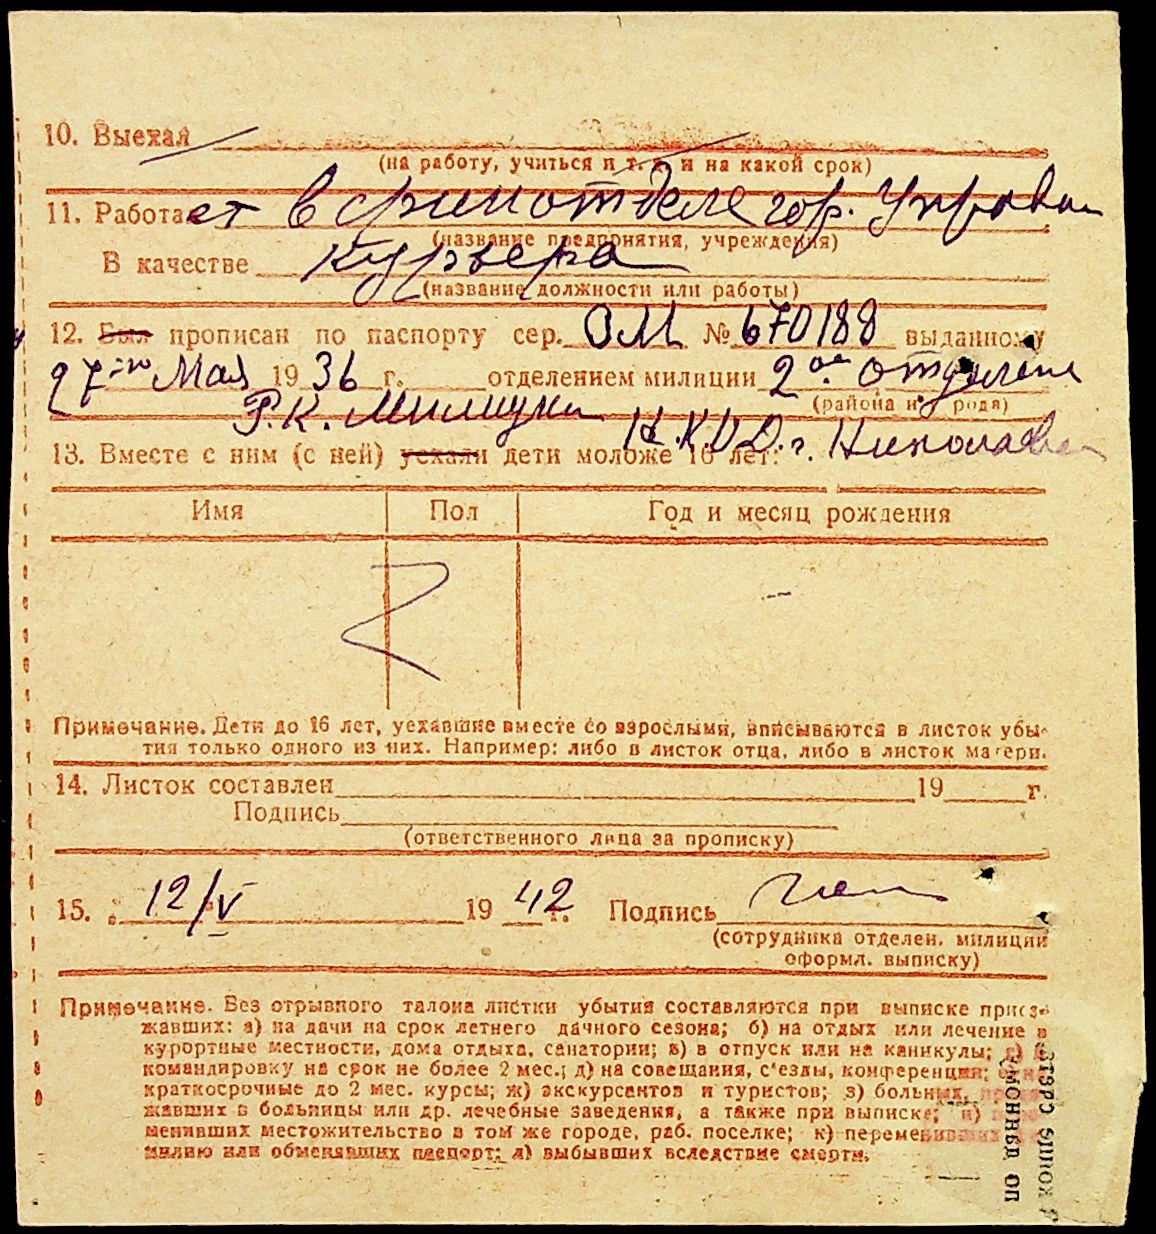 10. Выехал
(на работу, учиться и т. д. и на какой срок)
11. Работает в финотделе гор. Управы
(название предприятия, учреждения)
В качестве Курьера
(название должности или работы)
12. Был прописан по паспорту сер. ОМ № 670188 выданному
27го Мая 1936 г. отделением милиции 2ое отделен
(района и города)
Р.К. Милиции Н.К.В.Д. г. Николаева
13. Вместе с ним (с ней) уехали дети моложе 16 лет:
Имя Пол Год и месяц рождения
Z
Примечание. Дети до 16 лет, уехавшие вместе со взрослыми, вписываются в листок убы-
тия только одного из них. Например: либо в листок отца, либо в листок матери.
14. Листок составлен 19 г.
Подпись
(ответственного лица за прописку)
15. 12/V 1942 г. Подпись
(сотрудника отделен. милиции
оформл. выписку)
Примечание. Без отрывного талона листки убытия составляются при выписке приез-
жавших: а) на дачи на срок летнего дачного сезона; б) на отдых или лечение в
курортные местности, дома отдыха, санатории; в) в отпуск или на каникулы; г) в
командировку на срок не более 2 мес.; д) на совещания, с'езды, конференции; е) на
краткосрочные до 2 мес. курсы; ж) экскурсантов и туристов; з) больных, приез-
жавших в больницы или др. лечебные заведения, а также при выписке; и) пере-
менивших местожительство в том же городе, раб. поселке; к) переменивших фа-
милию или обменявших паспорт; л) выбывших вследствие смерти.